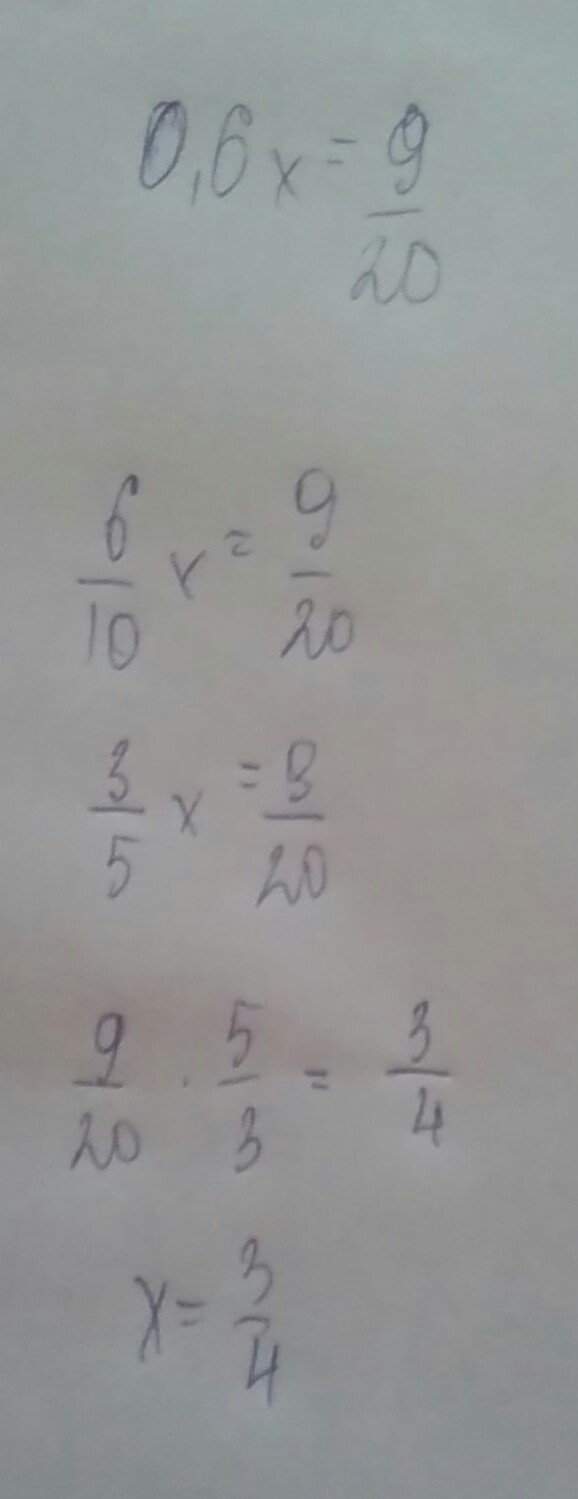 0,6x = 9/20
6/10 x = 9/20
3/5 x = 9/20
9/20 · 5/3 = 3/4
x = 3/4